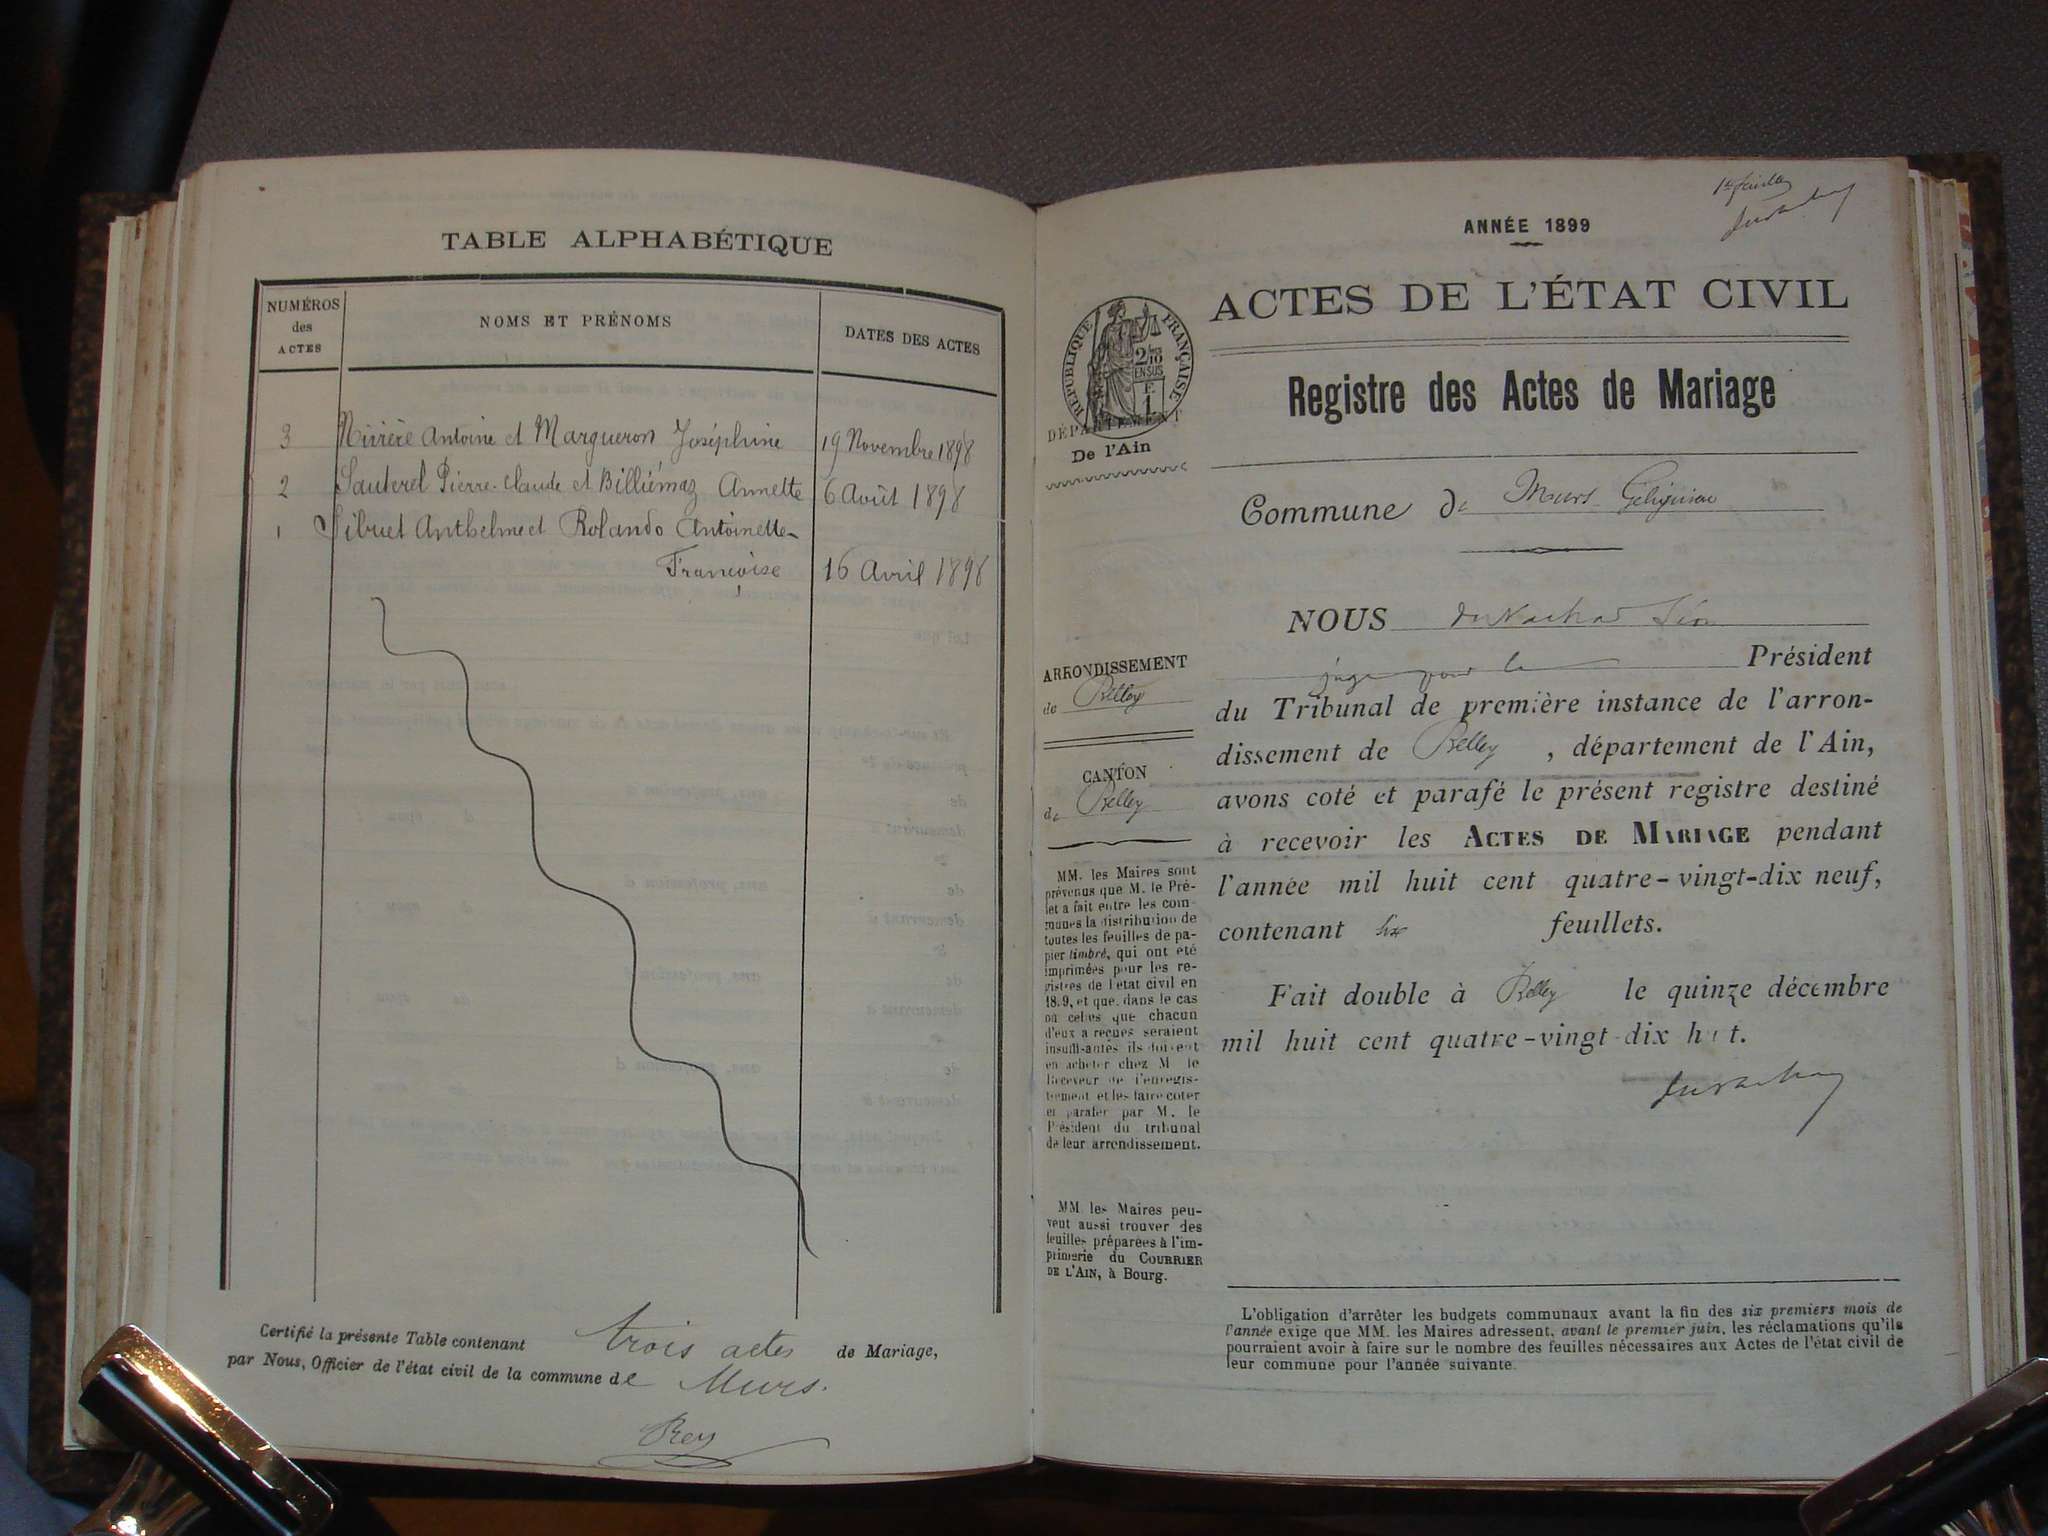 TABLE ALPHABÉTIQUE
NUMÉROS
des
ACTES
NOMS ET PRÉNOMS
DATES DES ACTES
3 Rivière Antoine et Margueron Joséphine 19 Novembre 1898
2 Sauterel Pierre-Claude et Billiémaz Annette 6 Août 1898
1 Sibuet Anthelme et Rolando Antoinette-
Françoise 16 Avril 1898
Certifié la présente Table contenant trois actes de Mariage,
par Nous, Officier de l'état civil de la commune de Murs.
Rey
1er feuillet
ANNÉE 1899
ACTES DE L'ÉTAT CIVIL
RÉPUBLIQUE FRANÇAISE
2/10
EN SUS
F.
1
DÉPARTEMENT
De l'Ain
Registre des Actes de Mariage
Commune de Murs Gélignieu
NOUS Léon
juge pour le Président
du Tribunal de première instance de l'arron-
dissement de Belley, département de l'Ain,
avons coté et parafé le présent registre destiné
à recevoir les ACTES DE MARIAGE pendant
l'année mil huit cent quatre-vingt-dix neuf,
contenant six feuillets.
Fait double à Belley le quinze décembre
mil huit cent quatre-vingt-dix h t.
ARRONDISSEMENT
de Belley
CANTON
de Belley
MM. les Maires sont
prévenus que M. le Pré-
fet a fait entre les com-
munes la distribution de
toutes les feuilles de pa-
pier timbré, qui ont été
imprimées pour les re-
gistres de l'état civil en
1899, et que, dans le cas
où celles que chacun
d'eux a reçues seraient
insuffisantes ils doivent
en acheter chez M. le
Receveur de l'enregis-
trement et les faire coter
et parafer par M. le
Président du tribunal
de leur arrondissement.
MM. les Maires peu-
vent aussi trouver des
feuilles préparées à l'im-
primerie du COURRIER
DE L'AIN, à Bourg.
L'obligation d'arrêter les budgets communaux avant la fin des six premiers mois de
l'année exige que MM. les Maires adressent, avant le premier juin, les réclamations qu'ils
pourraient avoir à faire sur le nombre des feuilles nécessaires aux Actes de l'état civil de
leur commune pour l'année suivante.